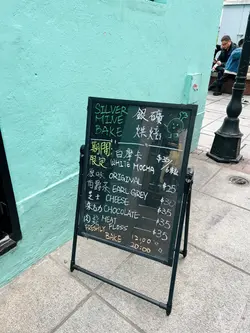 SILVER 銀礦
MINE
BAKE 烘焙
期間 白摩卡
限定 WHITE MOCHA
原味 ORIGINAL $25
伯爵茶 EARL GREY $35
芝士 CHEESE $30
朱古力 CHOCOLATE $35
肉鬆 MEAT FLOSS $35
FRESHLY BAKE 12:00
20:00